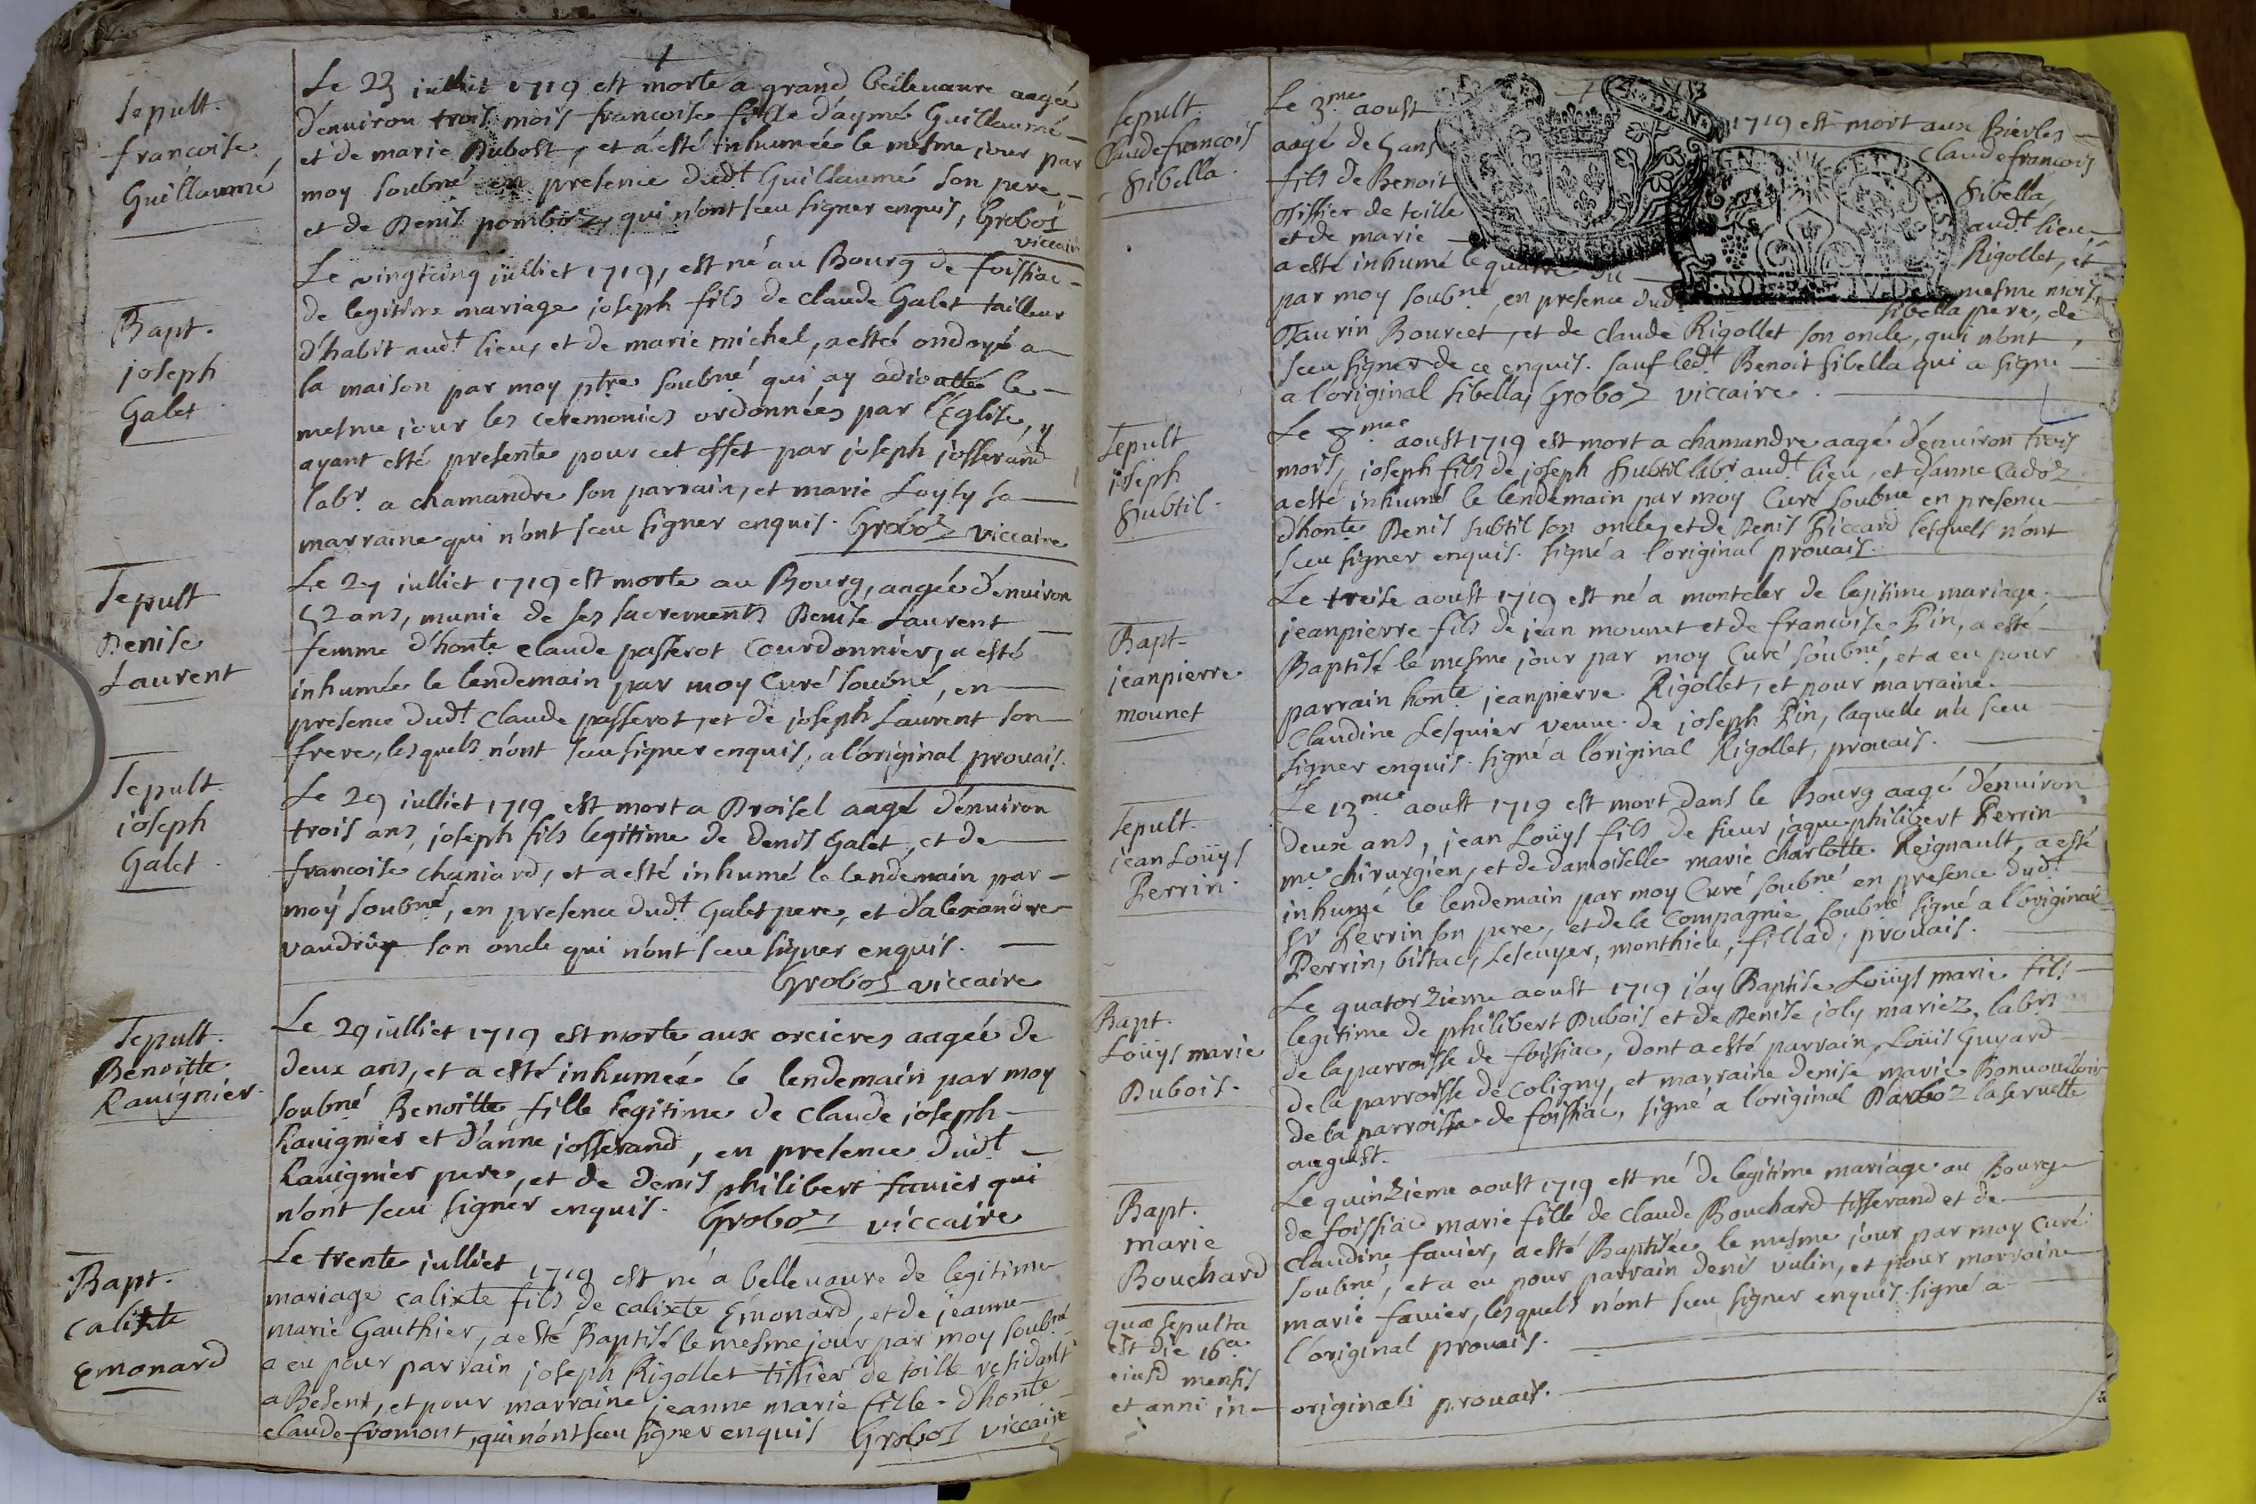 Sepult.
francoise
Guillaumé
Le 23 julliet 1719 est morte a grand bellevavre aagée
d'environ trois mois francoise fille d'aymé Guillaumé
et de marie Dubost, et a esté inhumée le mesme jour par
moy soubné en presence dudt Guillaumé son pere
et de Denis qui n'ont sceu signer enquis, Groboz
viccaire
Bapt.
joseph
Galet
Le vingtcinq julliet 1719, est né au Bourg de foissiac
de legitime mariage joseph fils de claude Galet tailleur
d'habit audt lieu, et de marie michel, a esté ondoyé a
la maison par moy ptre soubné qui ay adioutté le
mesme jour les ceremonies ordonnées par l'Eglise, y
ayant esté presenté pour cet effet par joseph josserand
labr. a chamandre son parrain, et marie Loysy sa
marraine qui n'ont sceu signer enquis. Groboz viccaire
Sepult
Denise
Laurent
Le 27 julliet 1719 est morte au Bourg, aagée d'environ
52 ans, munie de ses sacrements Denise Laurent
femme d'honte claude passerot Courdonnier, a esté
inhumée le lendemain par moy Curé soubné, en
presence dudt Claude passerot, et de joseph Laurent son
frere, lesquels n'ont sceu signer enquis, a l'original provais.
Sepult.
joseph
Galet
Le 29 julliet 1719 est mort a Droisel aagé d'environ
trois ans, joseph fils legitime de denis Galet, et de
francoise chaniard, et a esté inhumé le lendemain par
moy soubné, en presence dudt Galet pere, et d'alexandre
vaudrey son oncle qui n'ont sceu signer enquis.
Groboz viccaire
Sepult.
Benoitte
Ravignier.
Le 29 julliet 1719 est morte aux orcieres aagée de
deux ans, et a esté inhumée le lendemain par moy
soubné Benoitte fille legitime de claude joseph
Ravignier et d'anne josserand, en presence dudt
Ravignier pere, et de denis philibert favier qui
n'ont sceu signer enquis. Groboz viccaire
Bapt.
calixte
Emonard
Le trente julliet 1719 est né a bellevavre de legitime
mariage calixte fils de calixte Emonard, et de jeanne
marie Gauthier, a esté Baptisé le mesme jour par moy soubné
a eu pour parrain joseph Rigollet tissier de toille residant
a Besent, et pour marraine jeanne marie fille d'honte
claude fromont, qui n'ont sceu signer enquis Groboz viccaire
Sepult
Claudefrancois
Sibella.
Le 3me aoust 1719 est mort aux Bievles
aagé de 5 ans Claudefrancois
fils de Benoit Sibella
Tissier de toille audt lieu
et de marie Rigollet, et
a esté inhumé le quatre du mesme mois
par moy soubné, en presence dud Sibella pere, de
Taurin Bourcet, et de claude Rigollet son oncle, qui n'ont
sceu signer de ce enquis. sauf ledt Benoit Sibella qui a signé
a l'original Sibella, Groboz viccaire.
Sepult
joseph
Subtil.
Le 8me aoust 1719 est mort a chamandre aagé d'environ trois
mois, joseph fils de joseph Subtil labr audt lieu, et d'anne Cadoz
a esté inhumé le lendemain par moy Curé soubné en presence
d'honte Denis Subtil son oncle, et de Denis Siccard lesquels n'ont
sceu signer enquis. signé a l'original provais.
Bapt
jeanpierre
mounet
Le treise aoust 1719 est né a montcler de legitime mariage
jeanpierre fils de jean mounet et de francoise Pin, a esté
Baptisé le mesme jour par moy Curé soubné, et a eu pour
parrain honte jeanpierre Rigollet, et pour marraine
Claudine Lesquier veuve de joseph Pin, laquelle n'a sceu
signer enquis. signé a l'original Rigollet, provais.
Sepult.
jean Loüys
Perrin.
Le 13me aoust 1719 est mort dans le Bourg aagé d'environ
deux ans, jean Loüys fils de sieur jaque philibert Perrin
me chirurgien, et de damoiselle marie charlotte Reignault, a esté
inhumé le lendemain par moy Curé soubné en presence dudt
Sr Perrin son pere, et de la Compagnie soubné signé a l'original
Perrin, bistac, Lescuyer, monthieu, fillad, provais.
Bapt.
Loüys marie
Dubois.
Le quatorzième aoust 1719 j'ay Baptise Loüys marie fils
legitime de philibert Dubois et de Denise joly mariez, labrs
de la parroisse de foissiac, dont a esté parrain Loüis Guyard
de la parroisse de Coligny, et marraine denise marie
de la parroisse de foissiac, signé a l'original Darboz laservette
auegust.
Bapt.
marie
Bouchard
Le quinzième aoust 1719 est né de legitime mariage au Bourg
de foissiac marie fille de claude Bouchard tisserand et de
claudine favier, a esté Baptisée le mesme jour par moy Curé
soubné, et a eu pour parrain denis vulin, et pour marraine
marie favier, lesquels n'ont sceu signer enquis. signé a
l'original provais.
quae sepulta
est die 16a
eiusd mensis
et anni in originali provais.